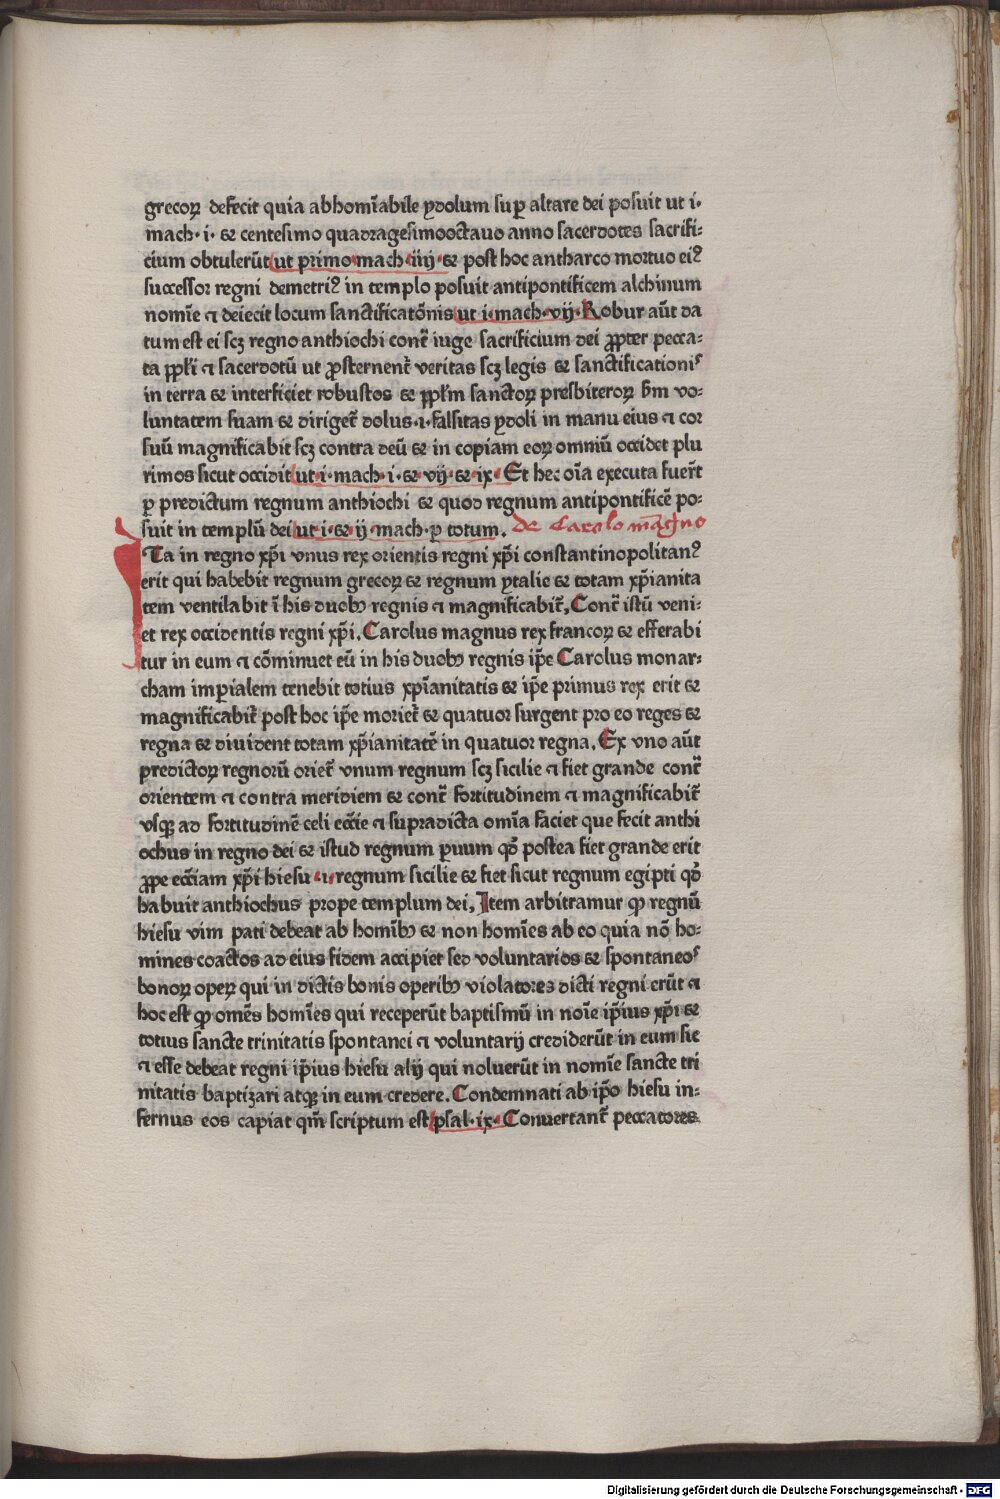 grecoꝝ defecit quia abhomīabile ydolum suꝑ altare dei posuit ut i·
mach· i· ⁊ centesimo quadragesimooctauo anno sacerdotes sacrifi:
cium obtulerūt ut primo mach iiij· ⁊ post hoc antharco mortuo eiꝰ
successor regni demetriꝰ in templo posuit antipontificem alchinum
nomīe ⁊ deiecit locum sanctificatōnis ut i· mach· vij· Robur aūt da
tum est ei scꝫ regno anthiochi contͥ iuge sacrificium dei ꝓpter pecca:
ta ꝓpłi ⁊ sacerdotū ut ꝓsternent̄ veritas scꝫ legis ⁊ sanctificationis
in terra ⁊ interficiet robustos ⁊ ꝓpłm sanctoꝝ presbiteroꝝ s̄m vo:
luntatem suam ⁊ diriget̄ dolus ·i· falsitas ydoli in manu eius ⁊ cor
suū magnificabit scꝫ contra deū ⁊ in copiam eoꝝ omniū occidet plu
rimos sicut occidit ut· i· mach· i· ⁊ vij· ⁊ ix· Et hec oīa executa fuer̄t
ꝑ predictum regnum anthiochi ⁊ quod regnum antipontificē po:
suit in templū dei ut i· ⁊ ij· mach· ꝑ totum. de Carolo magno
Ita in regno xp̄i vnus rex orientis regni xp̄i constantinopolitanꝰ
erit qui habebit regnum grecoꝝ ⁊ regnum ytalie ⁊ totam xp̄ianita
tem ventilabit ī his duobꝫ regnis ⁊ magnificabit̄, Cont̄ istū veni:
et rex occidentis regni xp̄i. Carolus magnus rex francoꝝ ⁊ efferabi
tur in eum ⁊ cōminuet eū in his duobꝫ regnis ip̄e Carolus monar:
cham imꝑialem tenebit totius xp̄ianitatis ⁊ ip̄e primus rex erit ⁊
magnificabit̄ post hoc ip̄e moriet̄ ⁊ quatuor surgent pro eo reges ⁊
regna ⁊ diuident totam xp̄ianitatē in quatuor regna. Ex vno aūt
predictoꝝ regnorū oriet̄ vnum regnum scꝫ sicilie ⁊ fiet grande cont̄
orientem ⁊ contra meridiem ⁊ cont̄ fortitudinem ⁊ magnificabit̄
vsqꝫ ad fortitudinē celi ecc̄ie ⁊ supradicta omīa faciet que fecit anthi
ochus in regno dei ⁊ istud regnum ꝑuum qđ postea fiet grande erit
ꝓpe ecc̄iam xp̄i hiesu ·i· regnum sicilie ⁊ fiet sicut regnum egipti qđ
habuit anthiochus prope templum dei, Item arbitramur ꝙ regnū
hiesu vim pati debeat ab homībꝫ ⁊ non homīes ab eo quia nō ho:
mines coactos ad eius fidem accipiet sed voluntarios ⁊ spontaneos
bonoꝝ opeꝝ qui in dictis bonis operibꝫ violatores dicti regni erūt ⁊
hoc est ꝙ omēs homīes qui receperūt baptismū in noīe ip̄ius xp̄i ⁊
totius sancte trinitatis spontanei ⁊ voluntarij crediderūt in eum sic
⁊ esse debeat regni ip̄ius hiesu alij qui noluerūt in nomīe sancte tri
nitatis baptizari atqꝫ in eum credere. Condemnati ab ip̄o hiesu in:
fernus eos capiat qm̄ scriptum est psal· ix· Conuertant̄ peccatores
Digitalisierung gefördert durch die Deutsche Forschungsgemeinschaft - DFG